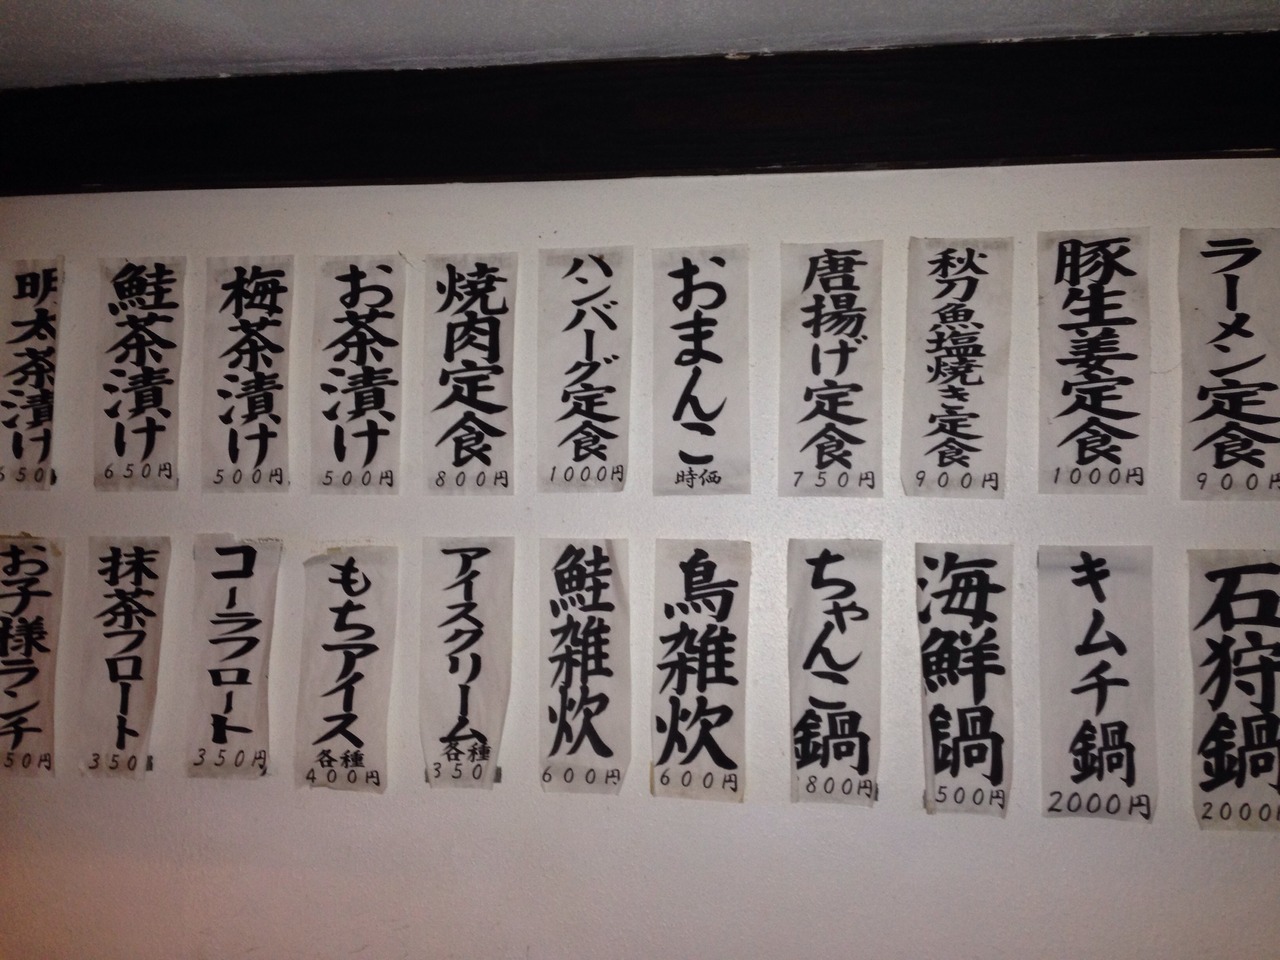 ラーメン定食
900円
豚生姜定食
1000円
秋刀魚塩焼き定食
900円
唐揚げ定食
750円
おまんこ
時価
ハンバーグ定食
1000円
焼肉定食
800円
お茶漬け
500円
梅茶漬け
500円
鮭茶漬け
650円
明太茶漬け
650
石狩鍋
2000円
キムチ鍋
2000円
海鮮鍋
500円
ちゃんこ鍋
800円
鳥雑炊
600円
鮭雑炊
600円
アイスクリーム
各種
350
もちアイス
各種
400円
コーラフロート
350円
抹茶フロート
350
お子様ランチ
50円